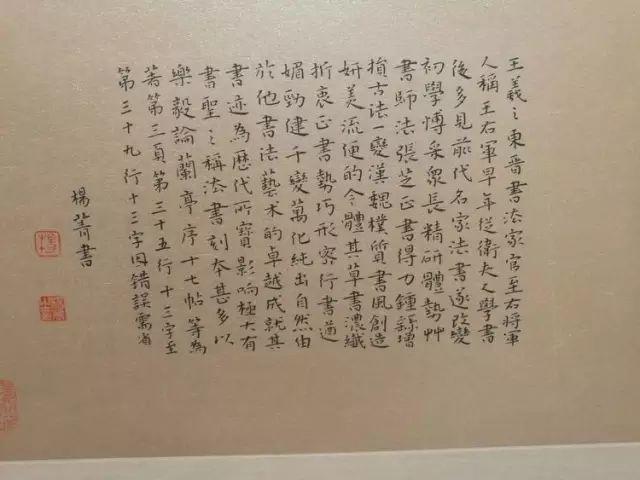 王羲之東晋書法家官至右將軍
人稱王右軍早年從衛夫人學書
後多見前代名家法書遂改變
初學博采眾長精研體勢艸
書師法張芝正書得力鍾繇增
損古法一變漢魏樸質書風創造
妍美流便的今體其草書濃纖
折衷正書勢巧形密行書遒
媚勁健千變萬化純出自然由
於他書法藝术的卓越成就其
書迹為歷代所寳影响極大有
書聖之稱法書刻本甚多以
樂毅論蘭亭序十七帖等為
著第三頁第三十五行十三字至
第三十九行十三字因錯誤需省
楊菁書